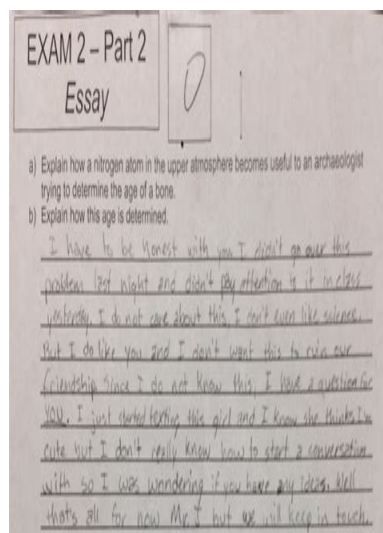 EXAM 2 – Part 2
Essay
0
a) Explain how a nitrogen atom in the upper atmosphere becomes useful to an archaeologist
trying to determine the age of a bone.
b) Explain how this age is determined.
I have to be honest with you I didn't go over this
problem last night and didn't pay attention to it in class
yesterday. I do not care about this, I don't even like science.
But I do like you and I don't want this to ruin our
friendship. Since I do not know this, I have a question for
you. I just started texting this girl and I know she thinks I'm
cute but I don't really know how to start a conversation
with so I was wondering if you have any ideas. Well
that's all for now Mr. J but we will keep in touch.